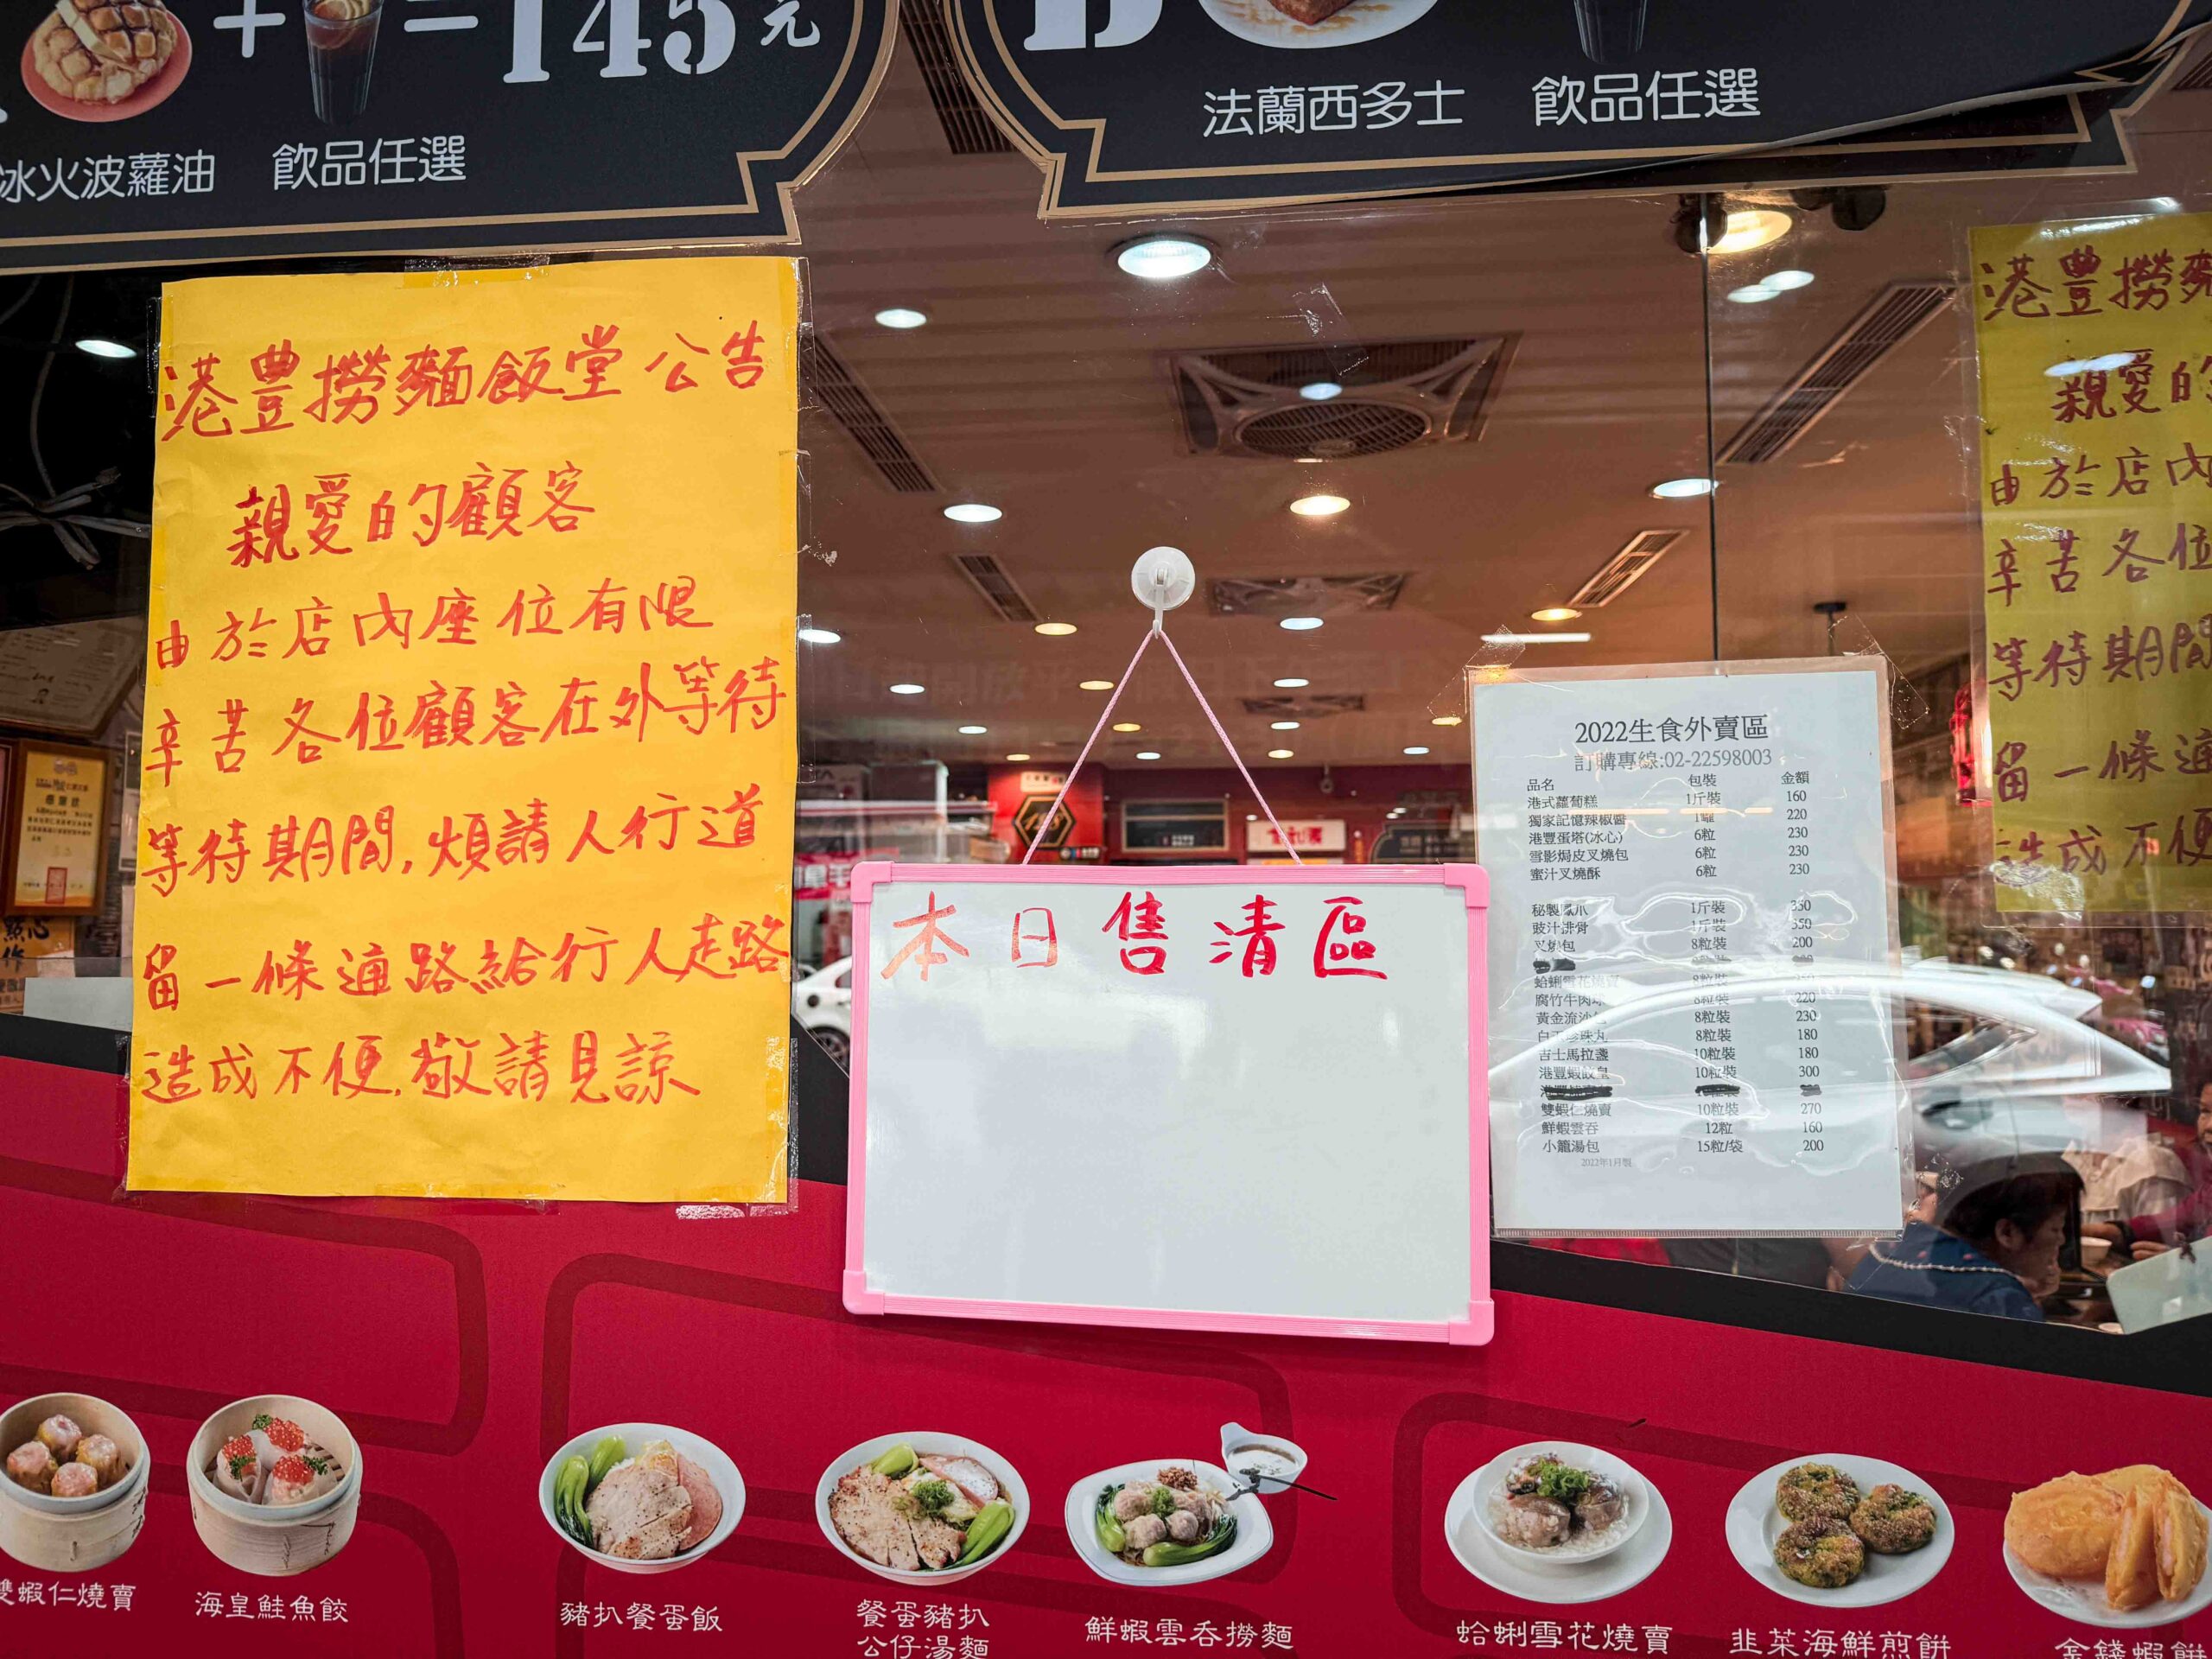 145元
冰火波蘿油 飲品任選
法蘭西多士 飲品任選
港豊撈麵飯堂公告
親愛的顧客
由於店內座位有限
辛苦各位顧客在外等待
等待期間,煩請人行道
留一條通路給行人走路
造成不便,敬請見諒
本日售清區
2022生食外賣區
訂購專線:02-22598003
品名 包裝 金額
港式蘿蔔糕 1斤裝 160
獨家記憶辣椒醬 1罐 220
港豐蛋塔(冰心) 6粒 230
雪影焗皮叉燒包 6粒 230
蜜汁叉燒酥 6粒 230
秘製鳳爪 1斤裝 350
豉汁排骨 1斤裝 350
叉燒包 8粒裝 200
蛤蜊雪花燒賣 8粒裝
腐竹牛肉球 8粒裝 220
黃金流沙包 8粒裝 230
白玉珍珠丸 8粒裝 180
吉士馬拉盞 10粒裝 180
港豐蝦餃皇 10粒裝 300
雙蝦仁燒賣 10粒裝 270
鮮蝦雲吞 12粒 160
小籠湯包 15粒/袋 200
2022年1月製
港豊撈
親愛的
由於店內
辛苦各位
等待期間
留一條通
造成不便
雙蝦仁燒賣
海皇鮭魚餃
豬扒餐蛋飯
餐蛋豬扒
公仔湯麵
鮮蝦雲吞撈麵
蛤蜊雪花燒賣
韭菜海鮮煎餅
金錢蝦餅